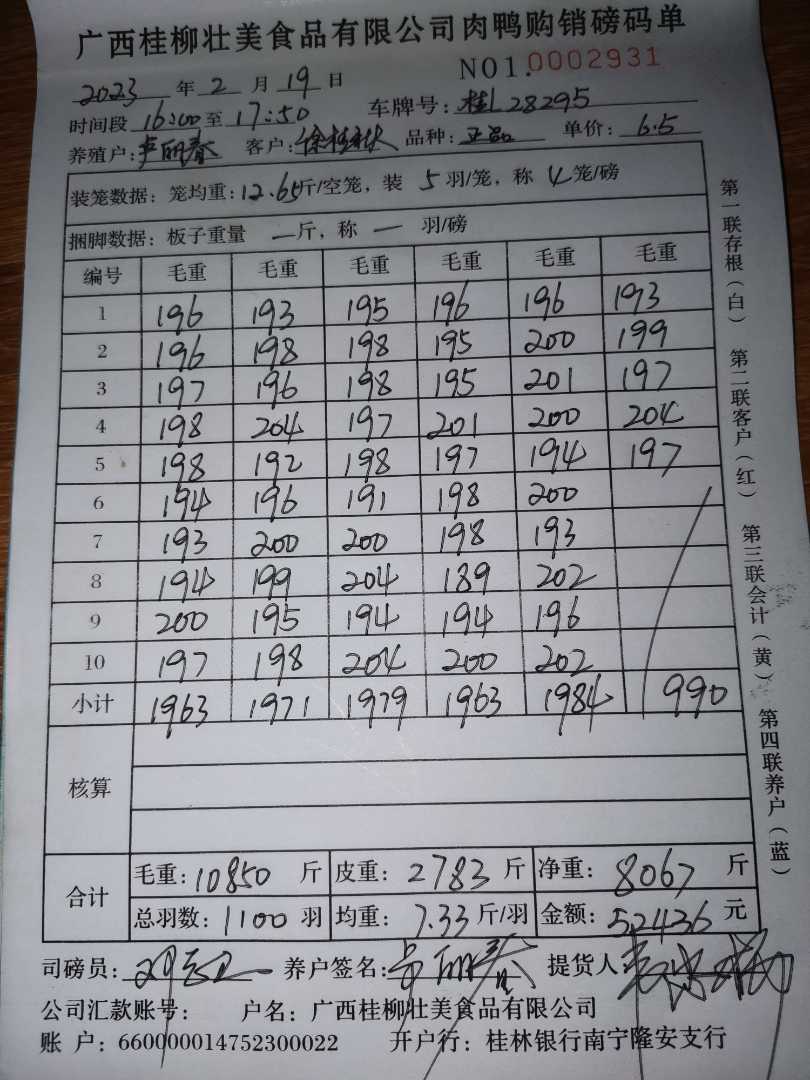 广西桂柳壮美食品有限公司肉鸭购销磅码单
NO1.0002931
2023 年 2 月 19 日
时间段 16:00 至 17:50 车牌号: 桂L28295
养殖户: 卢丽春 客户: 徐桂秋 品种: 正品 单价: 6.5
装笼数据: 笼均重: 12.65斤/空笼, 装 5 羽/笼, 称 4 笼/磅
捆脚数据: 板子重量 — 斤, 称 — 羽/磅
编号 毛重 毛重 毛重 毛重 毛重 毛重
1 196 193 195 196 196 193
2 196 198 198 195 200 199
3 197 196 198 195 201 197
4 198 204 197 201 200 204
5 198 192 198 197 194 197
6 194 196 191 198 200
7 193 200 200 198 193
8 194 199 204 189 202
9 200 195 194 194 196
10 197 198 204 200 202
小计 1963 1971 1979 1963 1984 990
核算
合计 毛重: 10850 斤 皮重: 2783 斤 净重: 8067 斤
总羽数: 1100 羽 均重: 7.33 斤/羽 金额: 52436 元
司磅员: 养户签名: 卢丽春 提货人
公司汇款账号: 户名: 广西桂柳壮美食品有限公司
账 户: 660000014752300022 开户行: 桂林银行南宁隆安支行
第一联存根(白) 第二联客户(红) 第三联会计(黄) 第四联养户(蓝)